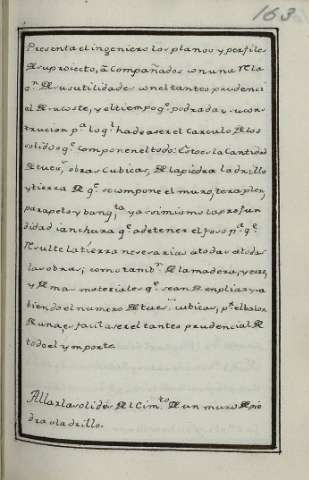 163
Presenta el ingeniero los planos y perfiles
de su proiecto, acompañados con una Rela
q.n de sus utilidades con el tanteo prudenci
el de coste, y el tiempo q.e podra dar su cons
trucion p.a lo q.l ha de aser el Calculo de los
solidos q.e componen el todo: Esto es la Cantidad
de tues.s, obras Cubicas, de la piedra ladrillo
y tierra de q.e se compone el muro, teraplen,
parapeto y banq.ta, y asi mismo la profun
didad i anchura q.e a de tener el foso p.a q.e
Resulte la tierra nesesaria a todas
las obras; como tamb.n de la madera, yeso,
y demas materiales q.e sean de enpliar, y a
biendo el numero de tues.s cubicas, p.r el balor
de una, es facil aser el tanteo prudencial de
todo el ymporte.
Allar la solidés del Cim.to de un muro de pie
dra o ladrillo.